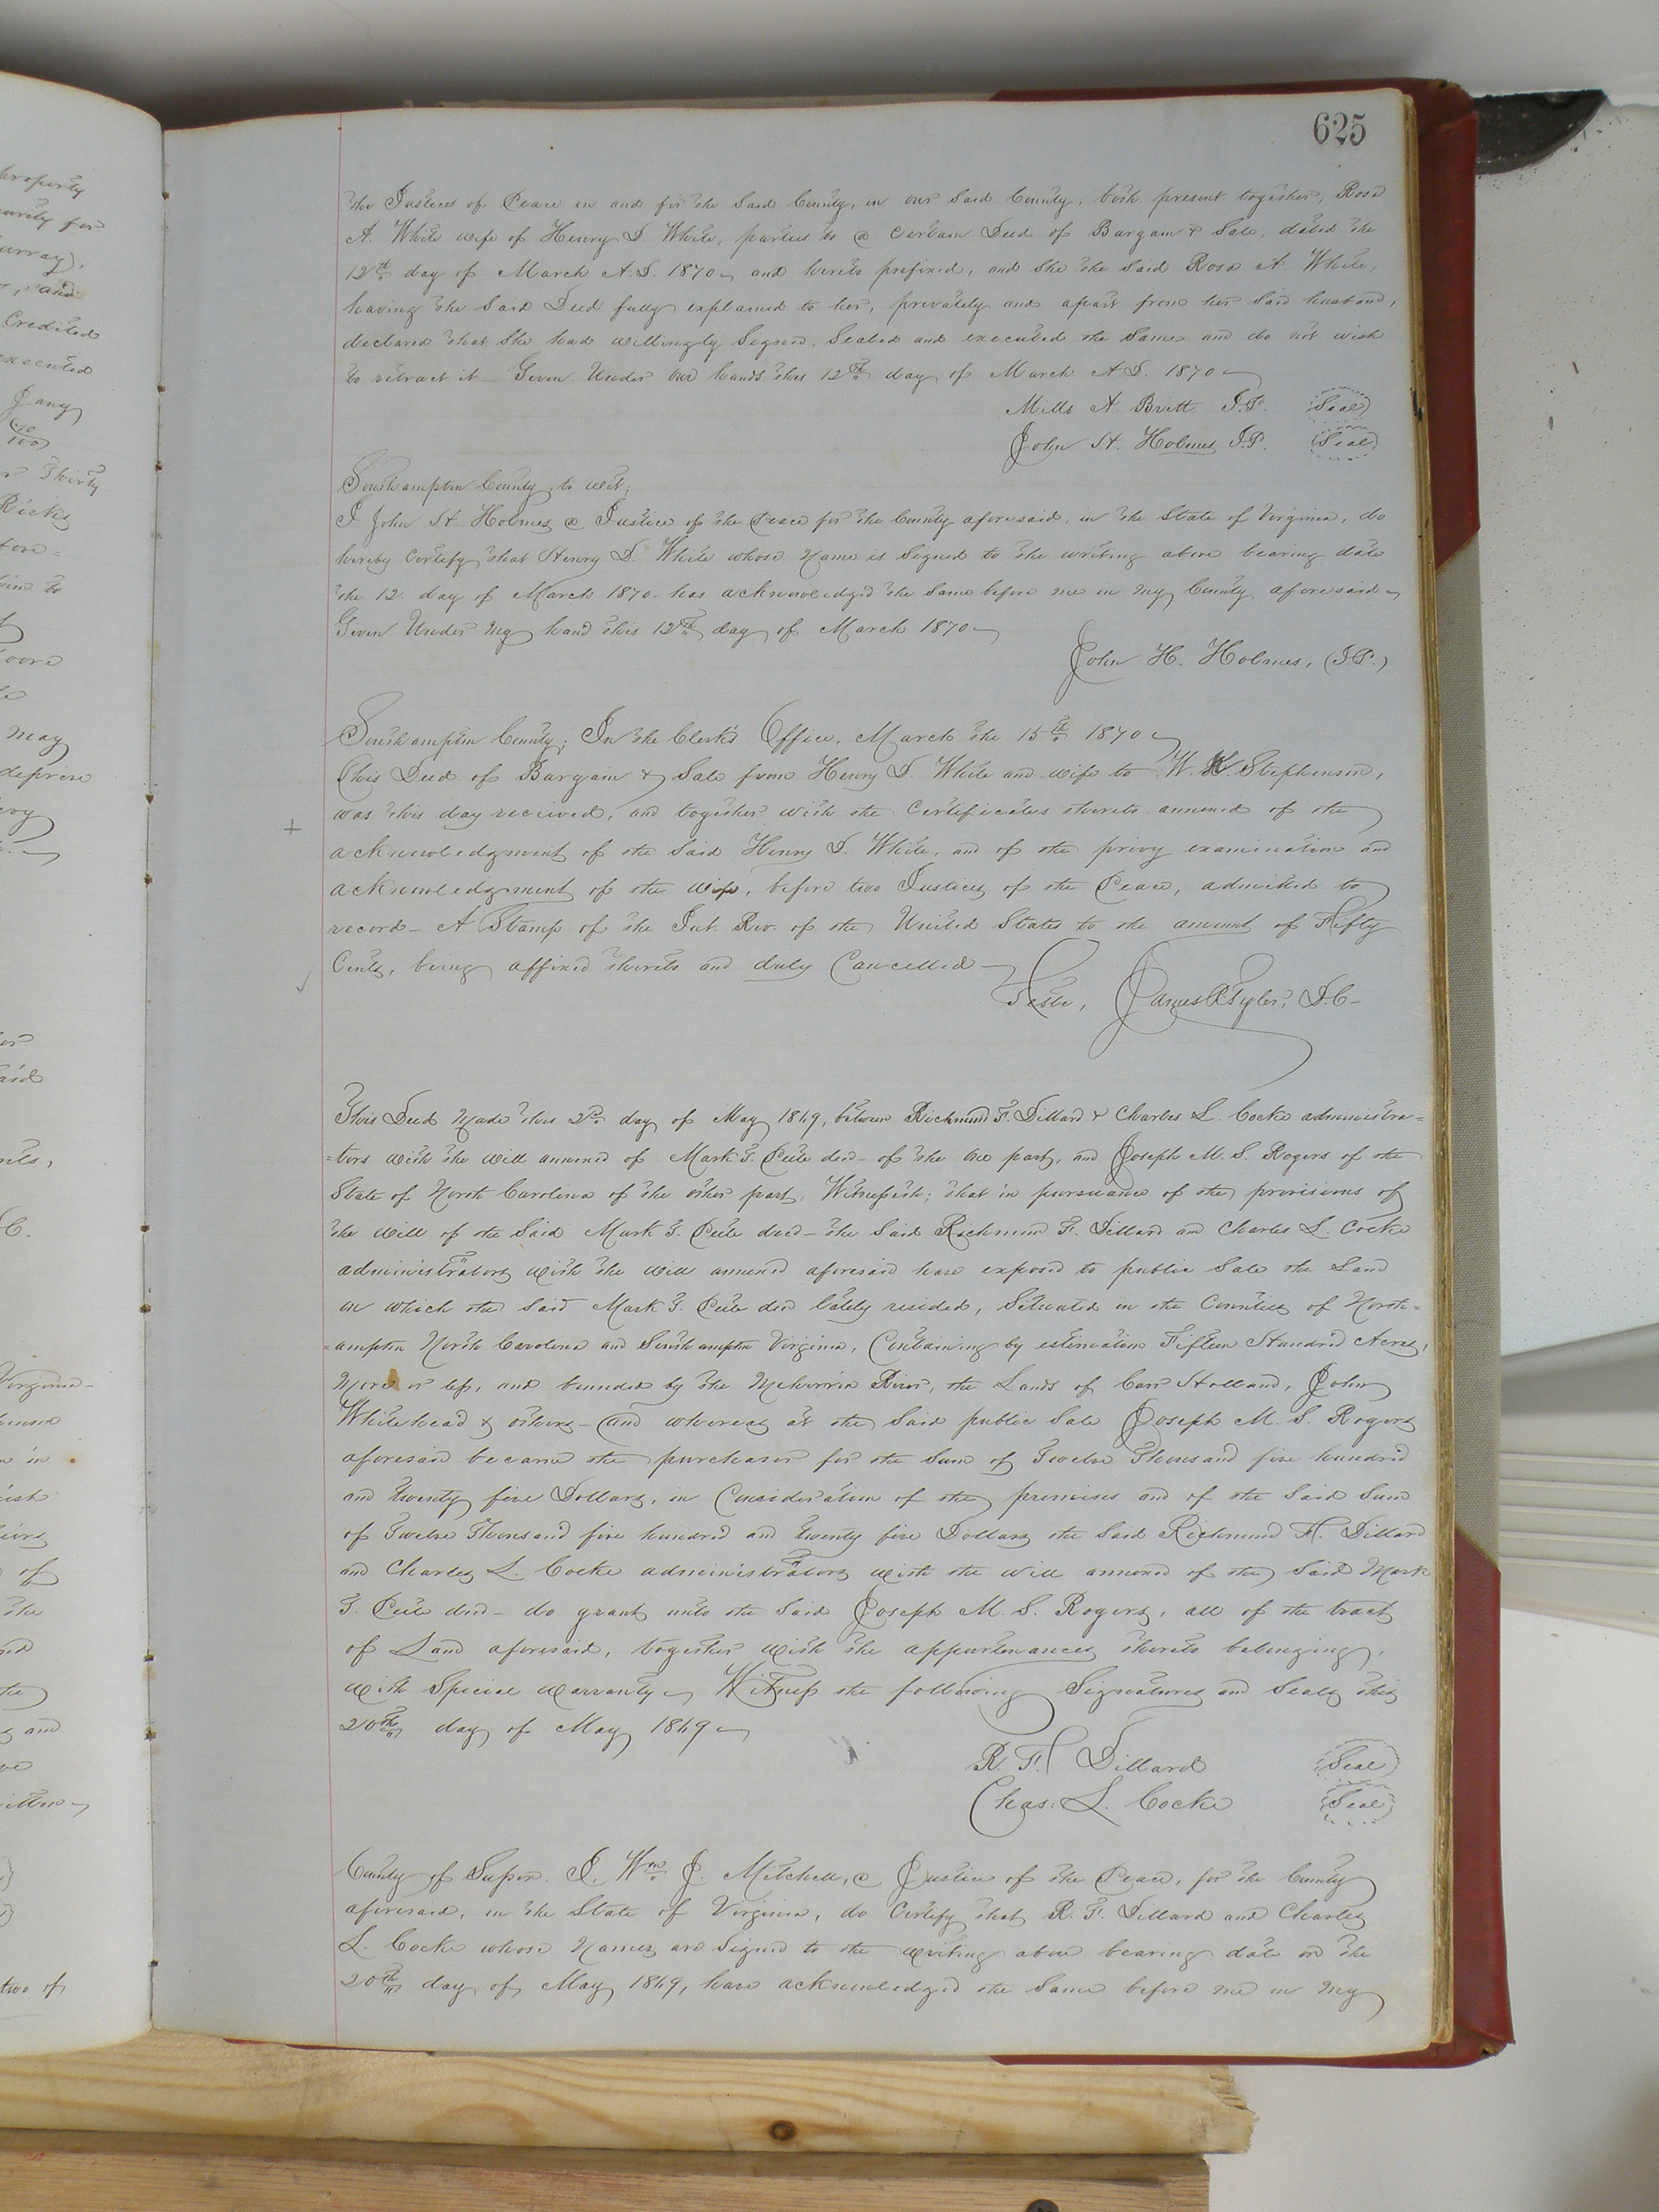 625
the Justices of Peace in and for the Said County, in our Said County, both present together, Rosa
A. White wife of Henry D. White, parties to a certain Deed of Bargain & Sale, dated the
12th day of March A.D. 1870 and hereto prefixed, and She the Said Rosa A White,
having the Said Deed fully explained to her, privately and apart from her Said husband,
declared that She had willingly Signed, Sealed and executed the Same and do not wish
to retract it – Given Under our hands this 12th day of March A.D. 1870
Mills A. Britt J.P. (Seal)
John H. Holmes J.P. (Seal)
Southampton County, to wit;
I John H. Holmes a Justice of the Peace for the County aforesaid, in the State of Virginia, do
hereby Certify that Henry D. White whose Name is Signed to the writing above bearing date
the 12. day of March 1870. has acknowledged the Same before me in my County aforesaid
Given Under My hand this 12th day of March 1870
John H. Holmes, (J.P.)
Southampton County; In the Clerk's Office, March the 15th 1870
This Deed of Bargain & Sale from Henry D. White and wife to W. Stephenson,
was this day received, and together with the Certificates thereto annexed of the
acknowledgment of the Said Henry D. White, and of the privy examination and
acknowledgment of the wife, before two Justices of the Peace, admitted to
record – A Stamp of the Int. Rev. of the United States to the amount of Fifty
Cents, being affixed thereto and duly Cancelled
Teste, James R Tyler, D.C.
This Deed Made this day of May 1869, between Richmond F. Dillard & Charles L. Cocke administra=
=tors with the will annexed of Mark T. Pete decd – of the one part, and Joseph M. S. Rogers of the
State of North Carolina of the other part, Witnesseth; that in pursuance of the provisions of
the will of the Said Mark T. Pete decd – the Said Richmond F. Dillard and Charles L. Cocke
administrators with the will annexed aforesaid have exposed to public Sale the Land
on which the Said Mark T. Pete decd lately resided, Situated in the Counties of North=
=ampton North Carolina and Southampton Virginia, Containing by estimation Fifteen Hundred Acres,
More or less, and bounded by the Meherrin River, the Lands of Carr Holland, John
Whitehead & others – and whereas at the Said public Sale Joseph M. S. Rogers
aforesaid became the purchaser for the Sum of Twelve Thousand five hundred
and twenty five Dollars, in Consideration of the premises and of the Said Sum
of Twelve Thousand five hundred and twenty five Dollars the Said Richmond F. Dillard
and Charles L. Cocke administrators with the will annexed of the Said Mark
T. Pete decd – do grant unto the Said Joseph M. S. Rogers, all of the tract
of Land aforesaid, together with the appurtenances thereto belonging,
with Special warranty Witness the following Signatures and Seals this
20th day of May 1869
R. F. Dillard (Seal)
Chas: L. Cocke (Seal)
County of I, Wm J. Mitchell, a Justice of the Peace, for the County
aforesaid, in the State of Virginia, do Certify that R. F. Dillard and Charles
L. Cocke whose Names are Signed to the writing above bearing date on the
20th day of May 1869, have acknowledged the Same before me in my